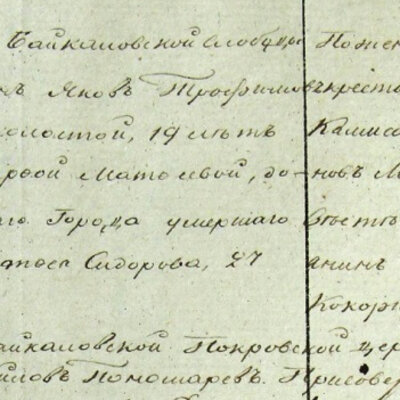 Байкаловской слободы Пожен
Яковъ Трофимовъ кресть
холостой, 19 лѣтъ Камыш
Матвѣевой, до- новъ М
го Города умершаго
Сидорова, 27 анинъ
Кокори
айкаловской Покровской цер
иловъ Пономаревъ. Присовер